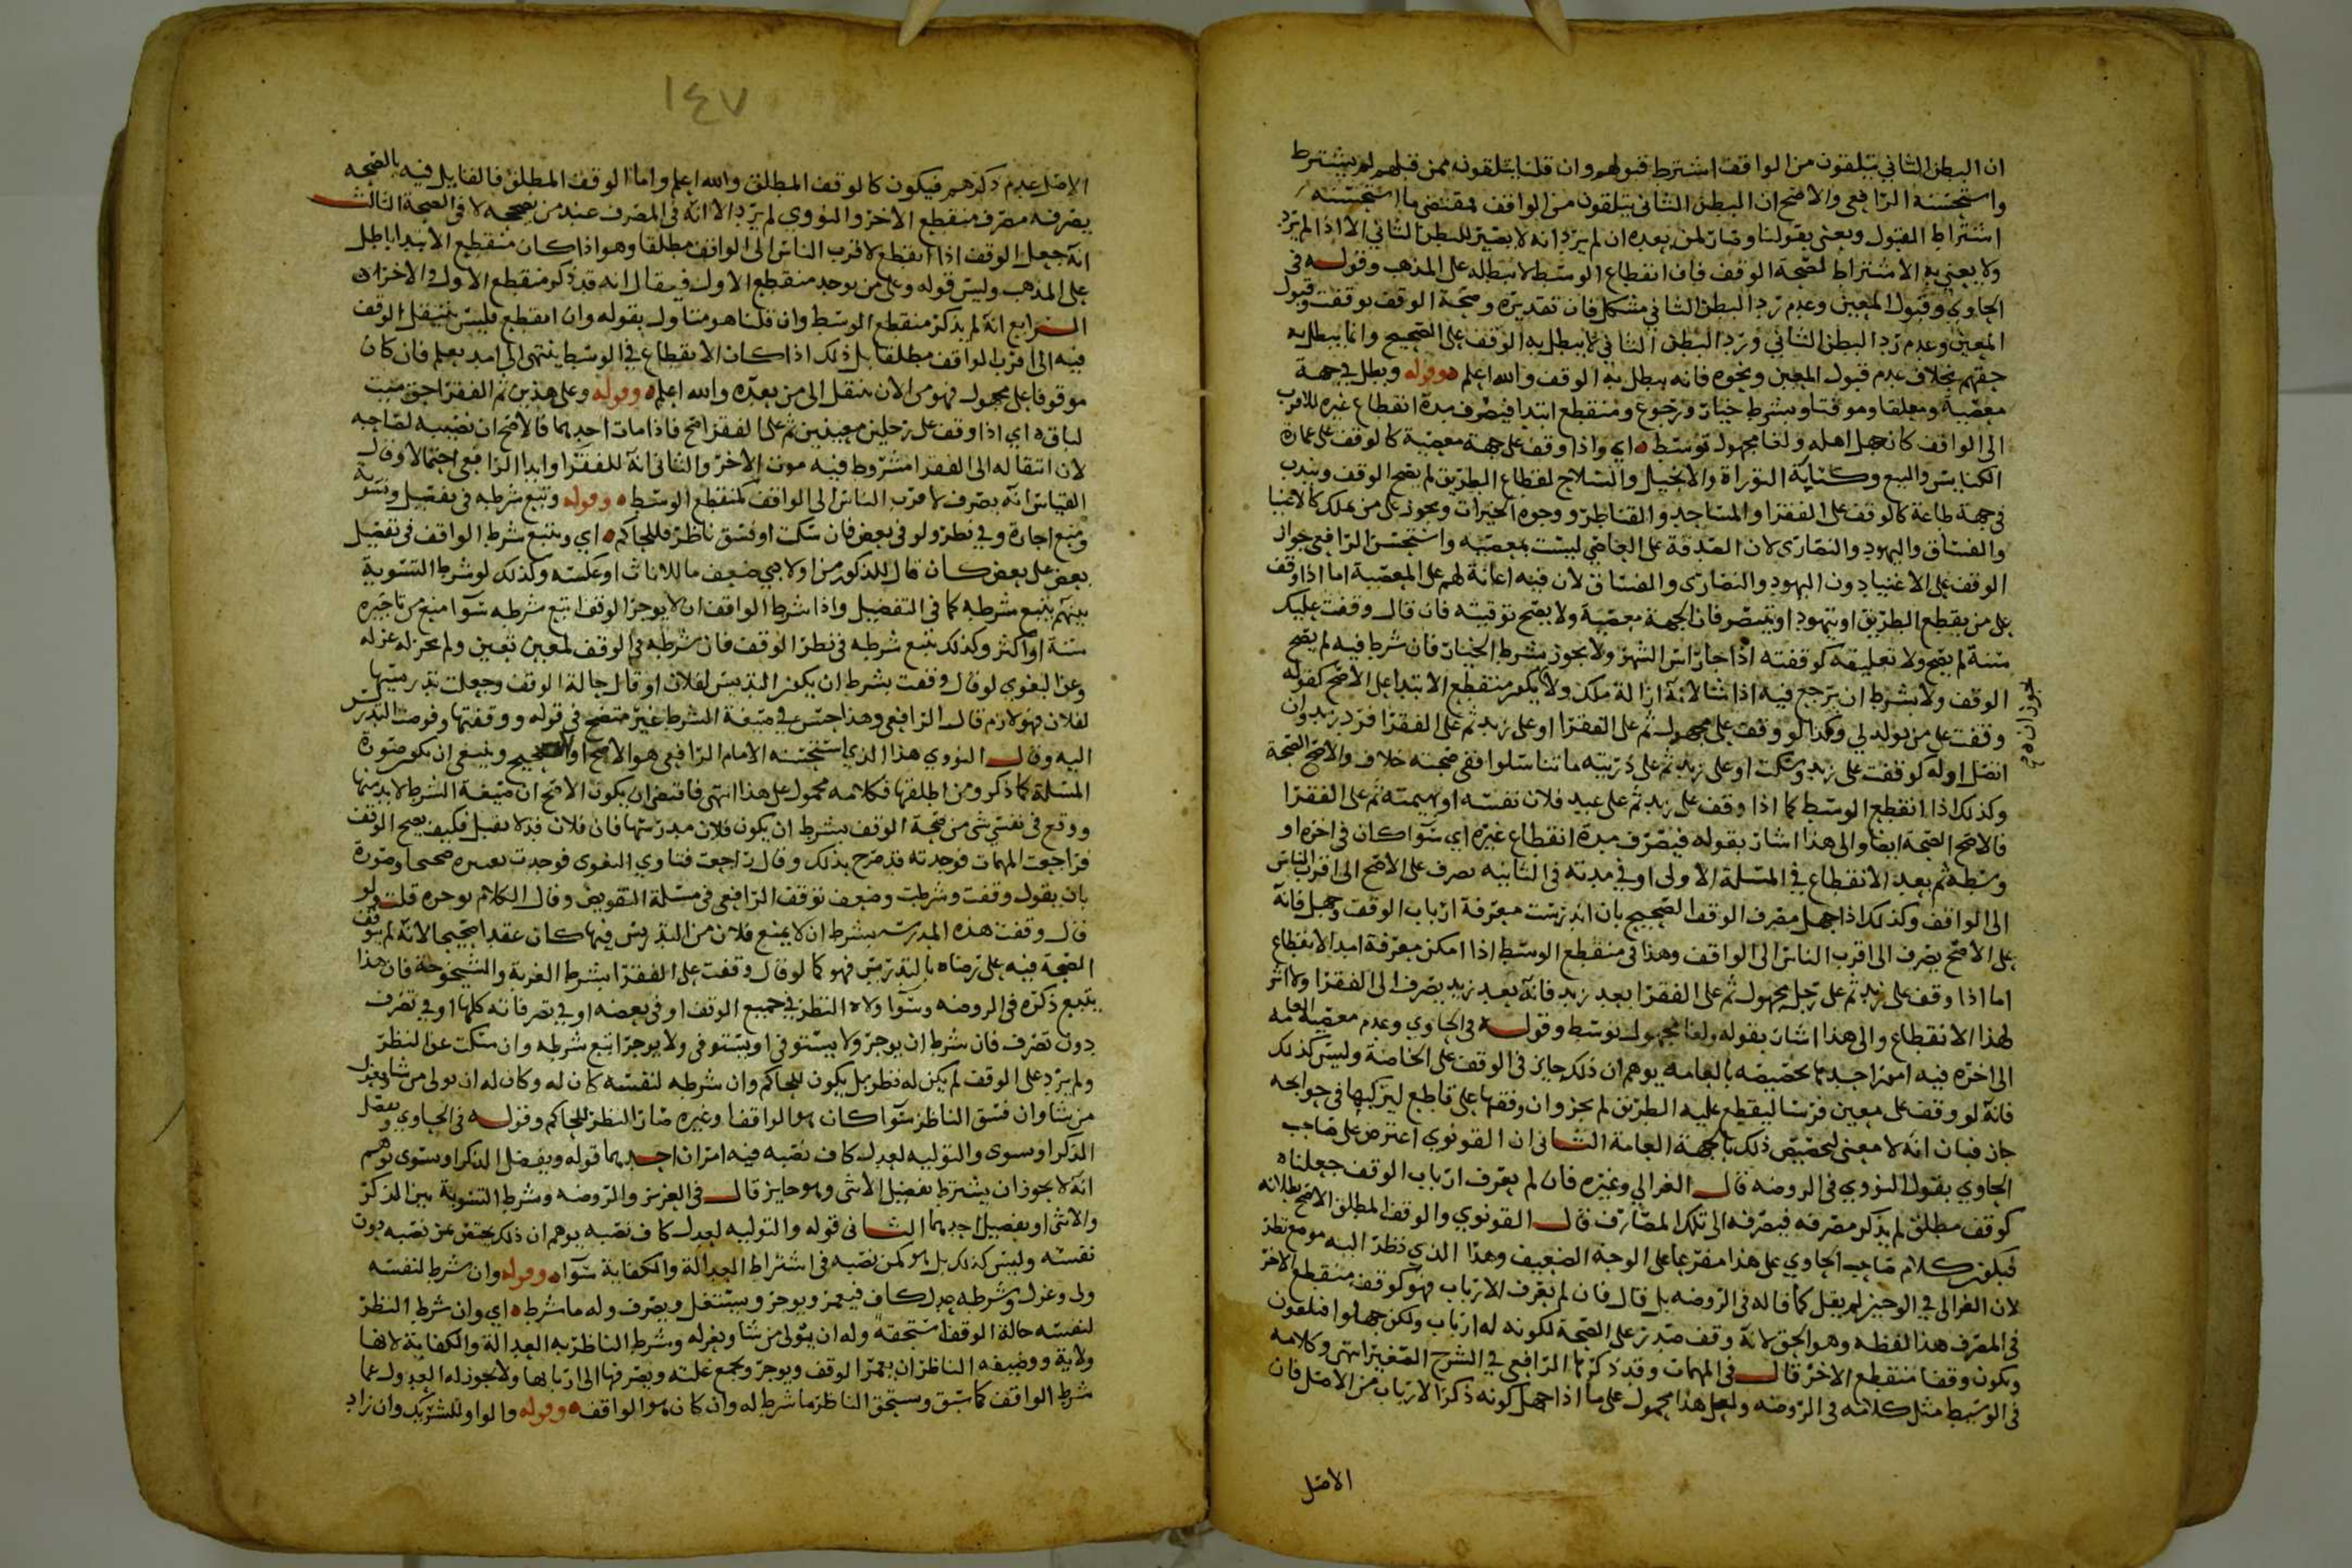 ان البطن الثاني يتلقون من الواقف اشترط قبولهم وان قلنا يتلقون ممن قبلهم لم يشترط
واستحسنه الرافعي والاصح ان البطن الثاني يتلقون من الواقف فمقتضى ما استحسنه
اشتراط القبول ويعني بقولنا وصار لمن بعده ان لم يرد انه لا يصير للبطن الثاني الا اذا لم يرد
ولا يعني به الاشتراط لصحة الوقف فان انقطاع الوسط لا يبطله على المذهب وقوله في
الحاوي وقبول المعين وعدم رد البطن الثاني مشكل فان تقديره وصحة الوقف بوقفت وقبول
المعين وعدم رد البطن الثاني ورد البطن الثاني لا يبطل به الوقف على الصحيح وانما يبطل به
حقهم بخلاف عدم قبول المعين ونحوه فانه يبطل به الوقف والله اعلم ه وقوله وبطل في جهة
معصية ومعلقا وموقتا وبشرط خيار ورجوع ومنقطع ابتدا فيصرف مدة انقطاع غيره للاقرب
الى الواقف كان جهل اهله ولغا مجهول توسط ه اي واذا وقف على جهة معصية كالوقف على عمارة
الكنايس والبيع وكتابة التوراة والانجيل والسلاح لقطاع الطريق لم يصح الوقف ويندب
في جهة طاعة كالوقف على الفقرا والمساجد والقناطر ووجوه الخيرات ويجوز على من يملك كالاغنيا
والفساق واليهود والنصارى لان الصدقة على العاصي ليست بمعصية واستحسن الرافعي جواز
الوقف على الاغنيا دون اليهود والنصارى والفساق لان فيه اعانة لهم على المعصية اما اذا وقف
على من يقطع الطريق او يتهود او يتنصر فان الجهة معصية ولا يصح توقيته فان قال وقفت عليك
سنة لم يصح ولا تعليقه كوقفته اذا جا راس الشهر ولا يجوز بشرط الخيار فان شرط فيه لم يصح
الوقف ولا بشرط ان يرجع فيه اذا شا لانه ازالة ملك ولا يكون منقطع الابتدا على الاصح كقوله
وقفت على من يولد لي وكذا لو وقف على مجهول ثم على الفقرا او على زيد ثم على الفقرا فرد زيد وان
اتصل اوله كوقفت على زيد وسكت او على زيد ثم على ذريته ما تناسلوا ففي صحته خلاف والاصح الصحة
وكذلك اذا انقطع الوسط كما اذا وقف على زيد ثم على عبد فلان نفسه او بهيمته ثم على الفقرا
فالاصح الصحة ايضا والى هذا اشار بقوله فيصرف مدة انقطاع غيره اي سوا كان في اخره او
وسطه ثم بعد الانقطاع في المسلة الاولى او في مدته في الثانيه يصرف على الاصح الى اقرب الناس
الى الواقف وكذلك اذا جهل مصرف الوقف الصحيح بان اندرست معرفة ارباب الوقف وجهل فانه
على الاصح يصرف الى اقرب الناس الى الواقف وهذا في منقطع الوسط اذا امكن معرفة امد الانقطاع
اما اذا وقف على زيد ثم على رجل مجهول ثم على الفقرا بعد زيد فانه بعد زيد يصرف الى الفقرا ولا اثر
لهذا الانقطاع والى هذا اشار بقوله ولغا مجهول توسط وقوله في الحاوي وعدم معصيه العامه
الى اخره فيه امور احدها تخصيصه بالعامه يوهم ان ذلك جايز في الوقف على الخاصة وليس كذلك
فانه لو وقف على معين فرسا ليقطع عليه الطريق لم يجز وان وقفها على قاطع ليركبها في حوايجه
جاز فبان انه لا معنى لتخصيص ذلك بالجهة العامة الثاني ان القونوي اعترض على صاحب
الحاوي بقول النووي في الروضه قال الغزالي وغيره فان لم يعرف ارباب الوقف جعلناه
كوقف مطلق لم يذكر مصرفه فيصرفه الى تلك المصارف قال القونوي والوقف المطلق الاصح بطلانه
فيكون كلام صاحب الحاوي على هذا مفرعا على الوجه الضعيف وهذا الذي نظر اليه موضع نظر
لان الغزالي في الوجيز لم يقل كما قاله في الروضه بل قال فان لم يعرف الارباب فهو كوقف منقطع الاخر
في المصرف هذا لفظه وهو الحق لانه وقف صدر على الصحة لكونه له ارباب ولكن جهلوا فيلغون
ويكون وقفا منقطع الاخر قال في المهمات وقد ذكرها الرافعي في الشرح الصغير انتهى وكلامه
في الوسيط مثل كلامه في الروضه ولعل هذا محمول على ما اذا جهل كونه ذكر الارباب من الاصل فان
الاصل
١٤٧
الاصل عدم ذكرهم فيكون كالوقف المطلق والله اعلم واما الوقف المطلق فالقايل فيه بالصحه
يصرفه مصرف منقطع الاخر والنووي لم يرد الا انه في المصرف عند من يصححه لا في الصحة الثالث
انه جعل الوقف اذا انقطع لاقرب الناس الى الواقف مطلقا وهو اذا كان منقطع الابتدا باطل
على المذهب وليس قوله وعلى من يوجد منقطع الاول فيقال انه قد ذكر منقطع الاول والاخران
الرابع انه لم يذكر منقطع الوسط وان قلنا هو متناول بقوله وان انقطع فليس ينتقل الوقف
فيه الى اقرب الواقف مطلقا بل ذلك اذا كان الانقطاع في الوسط ينتهي الى امد يعلم فان كان
موقوفا على مجهول فهو من الان منتقل الى من بعده والله اعلم ه وقوله وعلى هذين ثم الفقرا حق ميت
لباق ه اي اذا وقف على رجلين معينين ثم على الفقرا صح فاذا مات احدهما فالاصح ان نصيبه لصاحبه
لان انتقاله الى الفقرا مشروط فيه موت الاخر والثاني انه للفقرا وابدا الرافعي احتمالا وقال
القياس انه يصرف لاقرب الناس الى الواقف كمنقطع الوسط ه وقوله وتبع شرطه في تفضيل وتسوية
ومنع اجارة وفي نظر ولو في بعض فان سكت او فسق ناظر فللحاكم ه اي ويتبع شرط الواقف في تفضيل
بعض على بعض كان قال للذكور من اولادي ضعف ما للاناث او عكسه وكذلك لو شرط التسوية
بينهم يتبع شرطه كما في التفضيل واذا شرط الواقف ان لا يوجر الوقف اتبع شرطه سوا منع من تاجيره
سنة او اكثر وكذلك يتبع شرطه في نظر الوقف فان شرطه في الوقف لمعين تعين ولم يجز له عزله
وعن البغوي لو قال وقفت بشرط ان يكون التدريس لفلان او قال حالة الوقف وجعلت تدريسها
لفلان فهو لازم قال الرافعي وهذا حسن في صيغة الشرط غير متضح في قوله ووقفتها وفوضت التدريس
اليه وقال النووي هذا الذي استحسنه الامام الرافعي هو الاصح او الصحيح وينبغي ان يكون صورة
المسلة كما ذكر ومن اطلقها فكلامه محمول على هذا انتهى فاقتضى ان يكون الاصح ان صيغة الشرط لابد منها
ووقع في نفسي شي من صحة الوقف بشرط ان يكون فلان مدرسها فان فلان قد لا يقبل فكيف يصح الوقف
فراجعت المهمات فوجدته قد صرح بذلك وقال راجعت فتاوي البغوي فوجدت تصويره
بان يقول وقفت وشرطت وضعف توقف الرافعي في مسلة التفويض وقال الكلام بوجره قلت ولو
قال وقفت هذه المدرسه بشرط ان لا يمنع فلان من التدريس فيها كان عقدا صحيحا لانه لم يوقف
الصحة فيه على رضاه بالتدريس فهو كما لو قال وقفت على الفقرا بشرط الغربة والشيخوخة فان هذا
يتبع ذكره في الروضه وسوا ولاه النظر في جميع الوقف او في بعضه او في تصرفاته كلها او في تصرف
دون تصرف فان شرط ان يوجر ولا يستوفي او يستوفي ولا يوجر اتبع شرطه وان سكت عن النظر
ولم يرد على الوقف لم يكن له نظر بل يكون للحاكم وان شرطه لنفسه كان له وكان له ان يولى من شا ويعزل
من شا وان فسق الناظر سوا كان هو الواقف او غيره صار النظر للحاكم وقوله في الحاوي ويفضل
الذكر او سوى والتوليه لعدل كاف نصبه فيه امران احدهما قوله ويفضل الذكر او سوى توهم
انه لا يجوز ان يشترط تفضيل الانثى وهو جايز قال في العزيز والروضه وشرط التسوية بين الذكر
والانثى او تفضيل احدهما الثاني قوله والتوليه لعدل كاف نصبه يوهم ان ذلك يختص بمن نصبه دون
نفسه وليس كذلك بل هو كمن نصبه في اشتراط العدالة والكفاية سوا ه وقوله وان شرط لنفسه
ولى وعزل وشرطه عدل كاف فيعمر ويوجر ويستغل ويصرف وله ما شرط ه اي وان شرط النظر
لنفسه حالة الوقف استحقه وله ان يتولى من شا ويعزله وشرط الناظر به العدالة والكفاية لانها
ولاية ووظيفه الناظر ان يعمر الوقف ويوجر ويجمع غلته ويصرفها الى اربابها ولا يجوز له العدول عما
شرط الواقف كما سبق ويستحق الناظر ما شرط له وان كان هو الواقف ه وقوله والواو للتشريك وان زاد